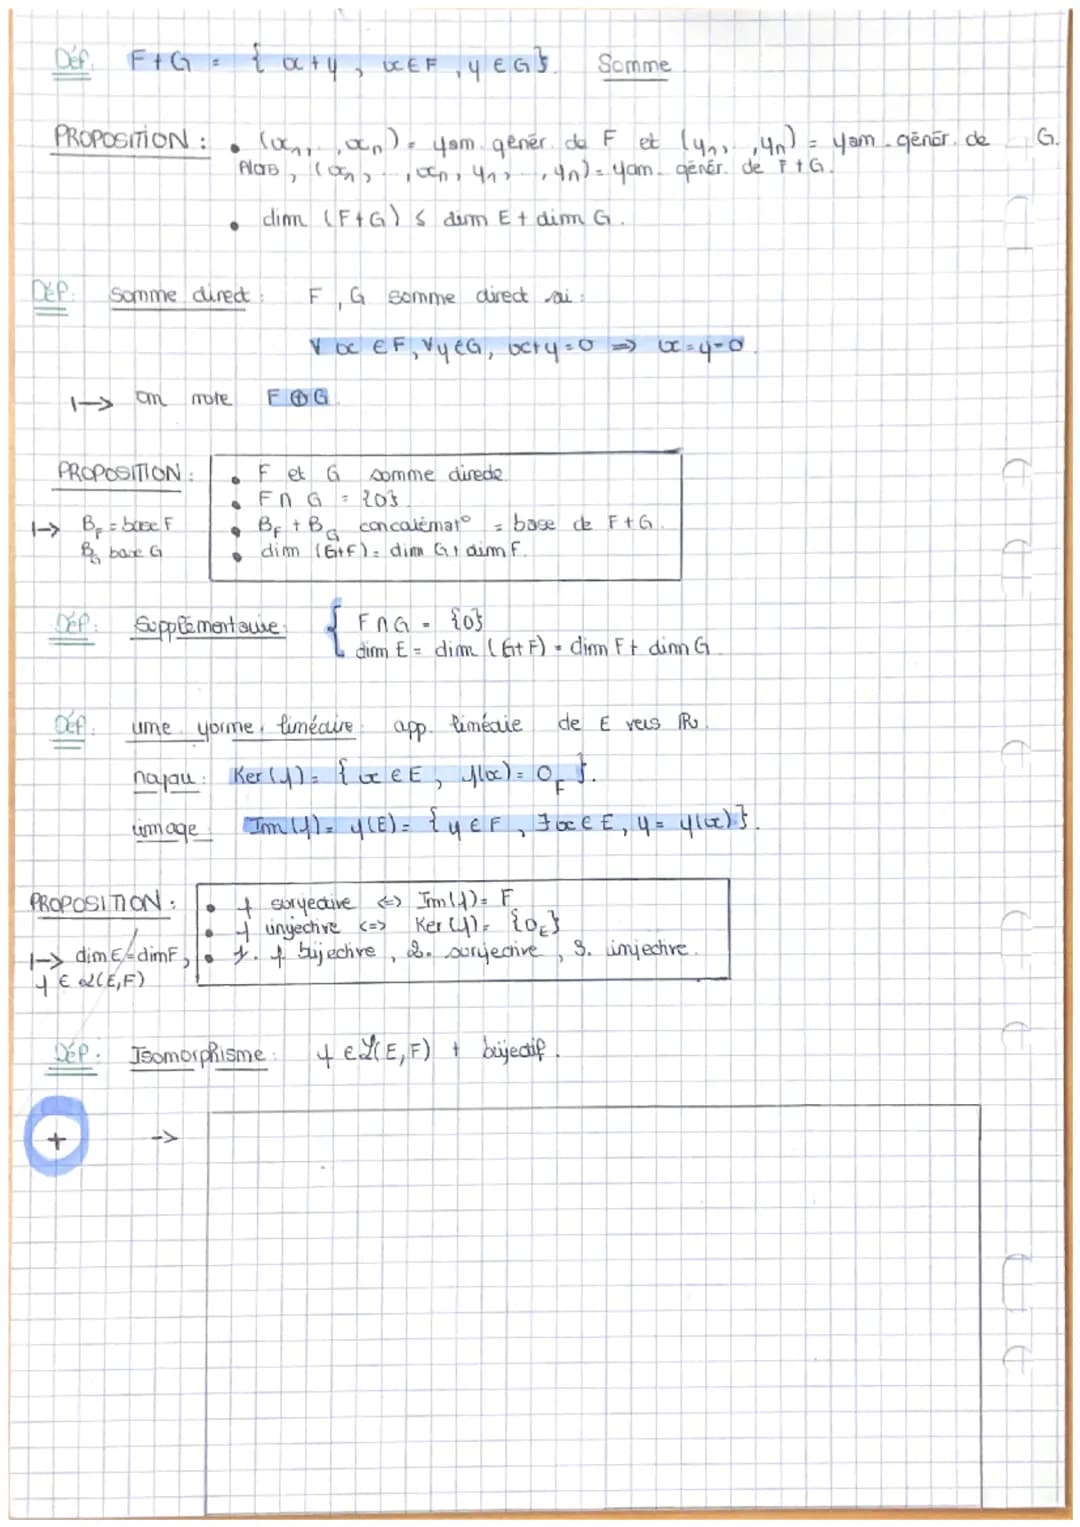 Déf. F+G = { x+y, x∈F, y∈G}. Somme
PROPOSITION : • (x₁, .., xₙ) = fam. génér. de F et (y₁, .., yₙ) = fam. génér. de G.
Alors, (x₁, .., xₙ, y₁, .., yₙ) = fam. génér. de F+G.
• dim (F+G) ≤ dim E + dim G.
Déf. Somme direct : F, G somme direct si :
∀ x ∈ F, ∀y∈G, x+y=0 ⇒ x=y=0.
↦ on note F⊕G.
PROPOSITION : • F et G somme directe
• F∩G = {0}.
↦ B_F = base F • B_F + B_G concaténat° = base de F+G.
B_G base G • dim (G+F) = dim G + dim F.
Déf. Supplémentaire : { F∩G = {0}
dim E = dim (G+F) = dim F + dim G.
Déf. une forme linéaire : app. linéaie de E vers ℝ.
noyau : Ker(f) = { x∈E, f(x) = 0_F }.
image : Im(f) = f(E) = { y∈F, ∃x∈E, y = f(x)}.
PROPOSITION : • f surjective <=> Im(f) = F
• f injective <=> Ker(f) = {0_E}
↦ dimE=dimF, • 1. f bijective, 2. surjective, 3. injective.
f ∈ ℒ(E,F)
Déf. Isomorphisme : f ∈ ℒ(E,F) + bijectif.
+ ->